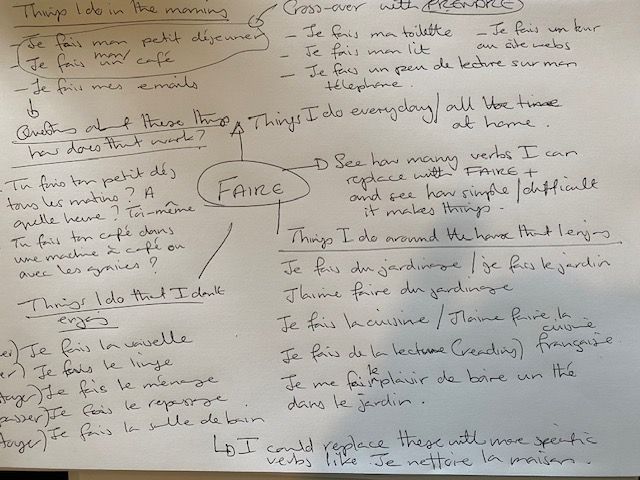 Things I do in the morning
- Je fais mon petit déjeuner
- Je fais mon/un café
- Je fais mes emails
Questions about these things
how does that work?
Tu fais ton petit déj
tous les matins? A
quelle heure? Toi-même
Tu fais ton café dans
une machine à café ou
avec les graines?
Cross-over with PRENDRE
- Je fais ma toilette
- Je fais mon lit
- Je fais un peu de lecture sur mon
téléphone.
- Je fais un tour
au site webs
Things I do everyday / all the time
at home.
FAIRE
See how many verbs I can
replace with FAIRE +
and see how simple/difficult
it makes things.
Things I do around the house that I enjoy
Je fais du jardinage / je fais le jardin
J'aime faire du jardinage
Je fais la cuisine / J'aime faire la
cuisine
française.
Je fais de la lecture (reading)
Je me fais le plaisir de boire un thé
dans le jardin.
Things I do that I don't
enjoy
er) Je fais la vaisselle
er) Je fais le linge
toyer) Je fais le ménage
passer) Je fais le repassage
toyer) Je fais la salle de bain
I could replace these with more specific
verbs like Je nettoie la maison.